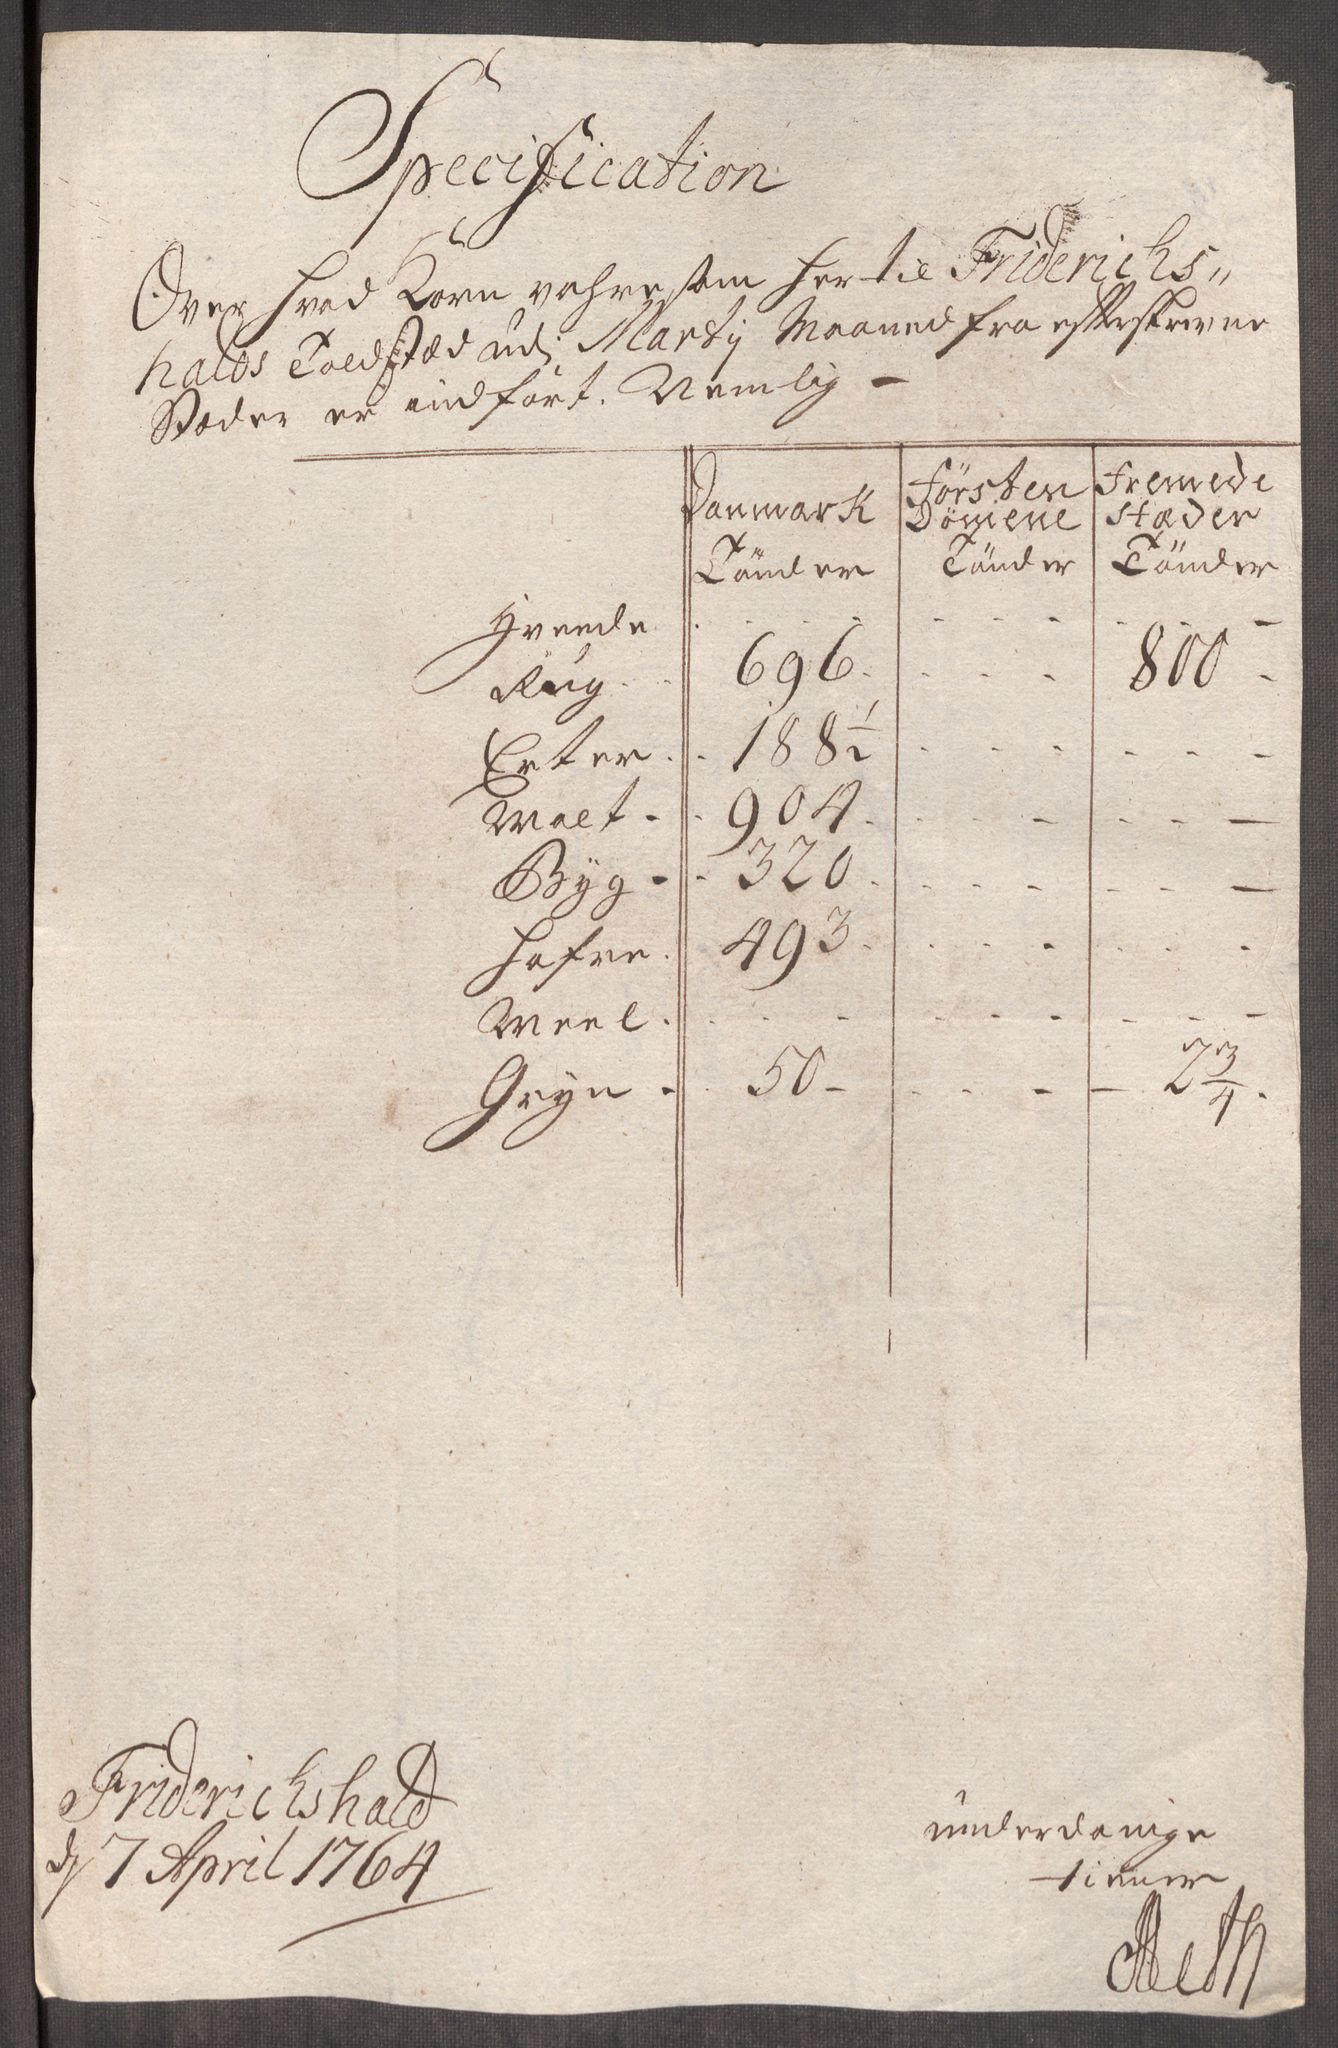 Specification
Over hvad Korn vahre som her til Friderichs„
halds Toldstæd udi Marty Maaned fra efterskrevne
Stæder er indført. Nemlig -
Danmark Førsten Fremede
Dømene stæder
Tønder Tønder Tønder
Hveede . . . . . . . . - . . -
Rug . . 696. . . . 800 .
Erter . . 188 1/2 . . . . - - - -
Malt . . 904. . . - . . - —
Byg . . 320. . . . - - - —
Hafre . 493. . . . . . . .
Meel . . . . - . . . . - . - -
Gryn . . 50 - . . . - — 2 3/4 .
Friderichshald
d 7 April 1764
underdanige
tiener